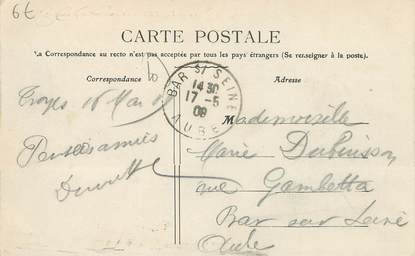 6€
CARTE POSTALE
La Correspondance au recto n'est pas acceptée par tous les pays étrangers (Se renseigner à la poste.)
Correspondance
Adresse
BAR S/ SEINE
14 30
17 - 5
09
AUBE
Troyes 16 Mai
Pensées amies
M
Mademoiselle
Marie Dubuisson
rue Gambetta
Bar sur Seine
Aube